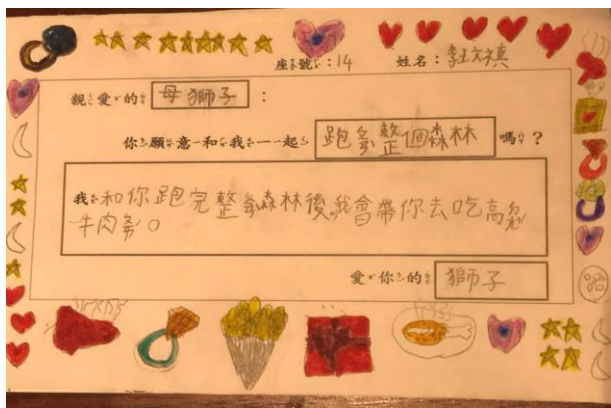 座號：14 姓名：李玟禛
親愛的 母獅子 ：
你願意和我一起 跑整個森林 嗎？
我和你跑完整森林後，我會帶你去吃高級
牛肉。
愛你的 獅子